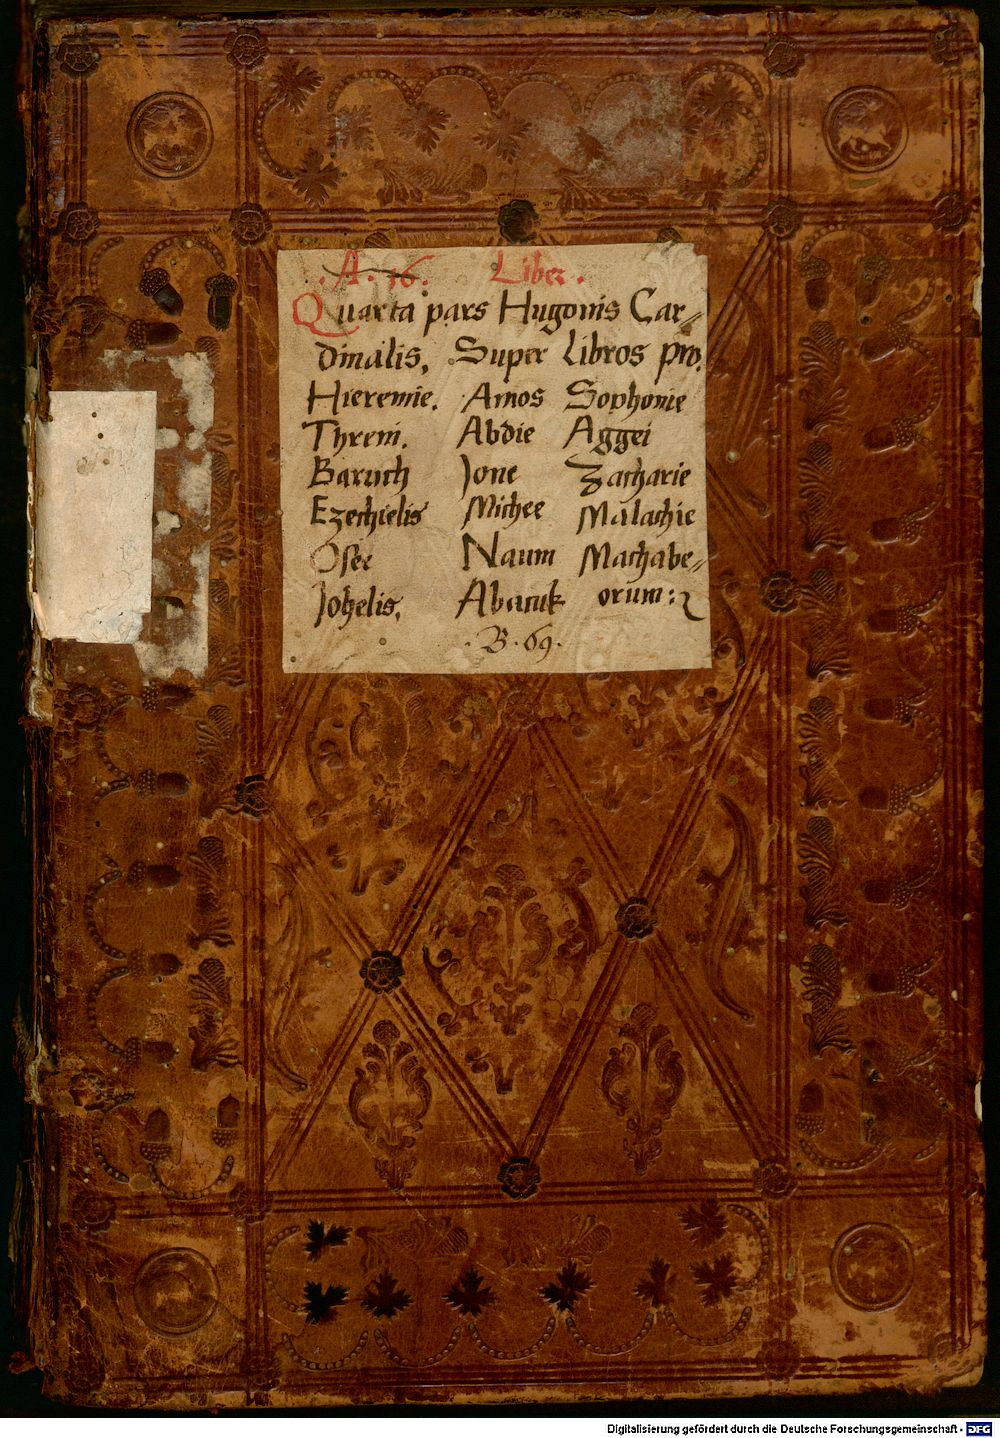 . A . 16 . Liber .
Quarta pars Hugonis Car=
dinalis. Super Libros pro.
Hieremie. Amos Sophonie
Threni. Abdie Aggei
Baruch Jone Zacharie
Ezechielis Michee Malachie
Osee Naum Machabe=
Johelis. Abacuk orum:
. B . 69 .
Digitalisierung gefördert durch die Deutsche Forschungsgemeinschaft - DFG